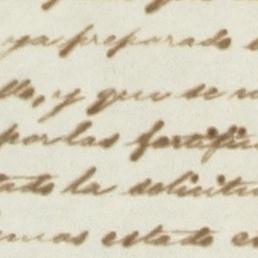 ya preparado
llo, y que se
por las fortifi
tado la solicitu
emos estado e